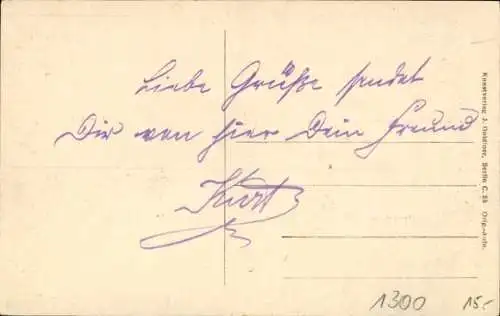 Liebe Grüße sendet
Dir von hier Dein Freund
Kurt
Kunstverlag J. Goldiner, Berlin C. 25 Orig.-Aufn.
1300 15.-